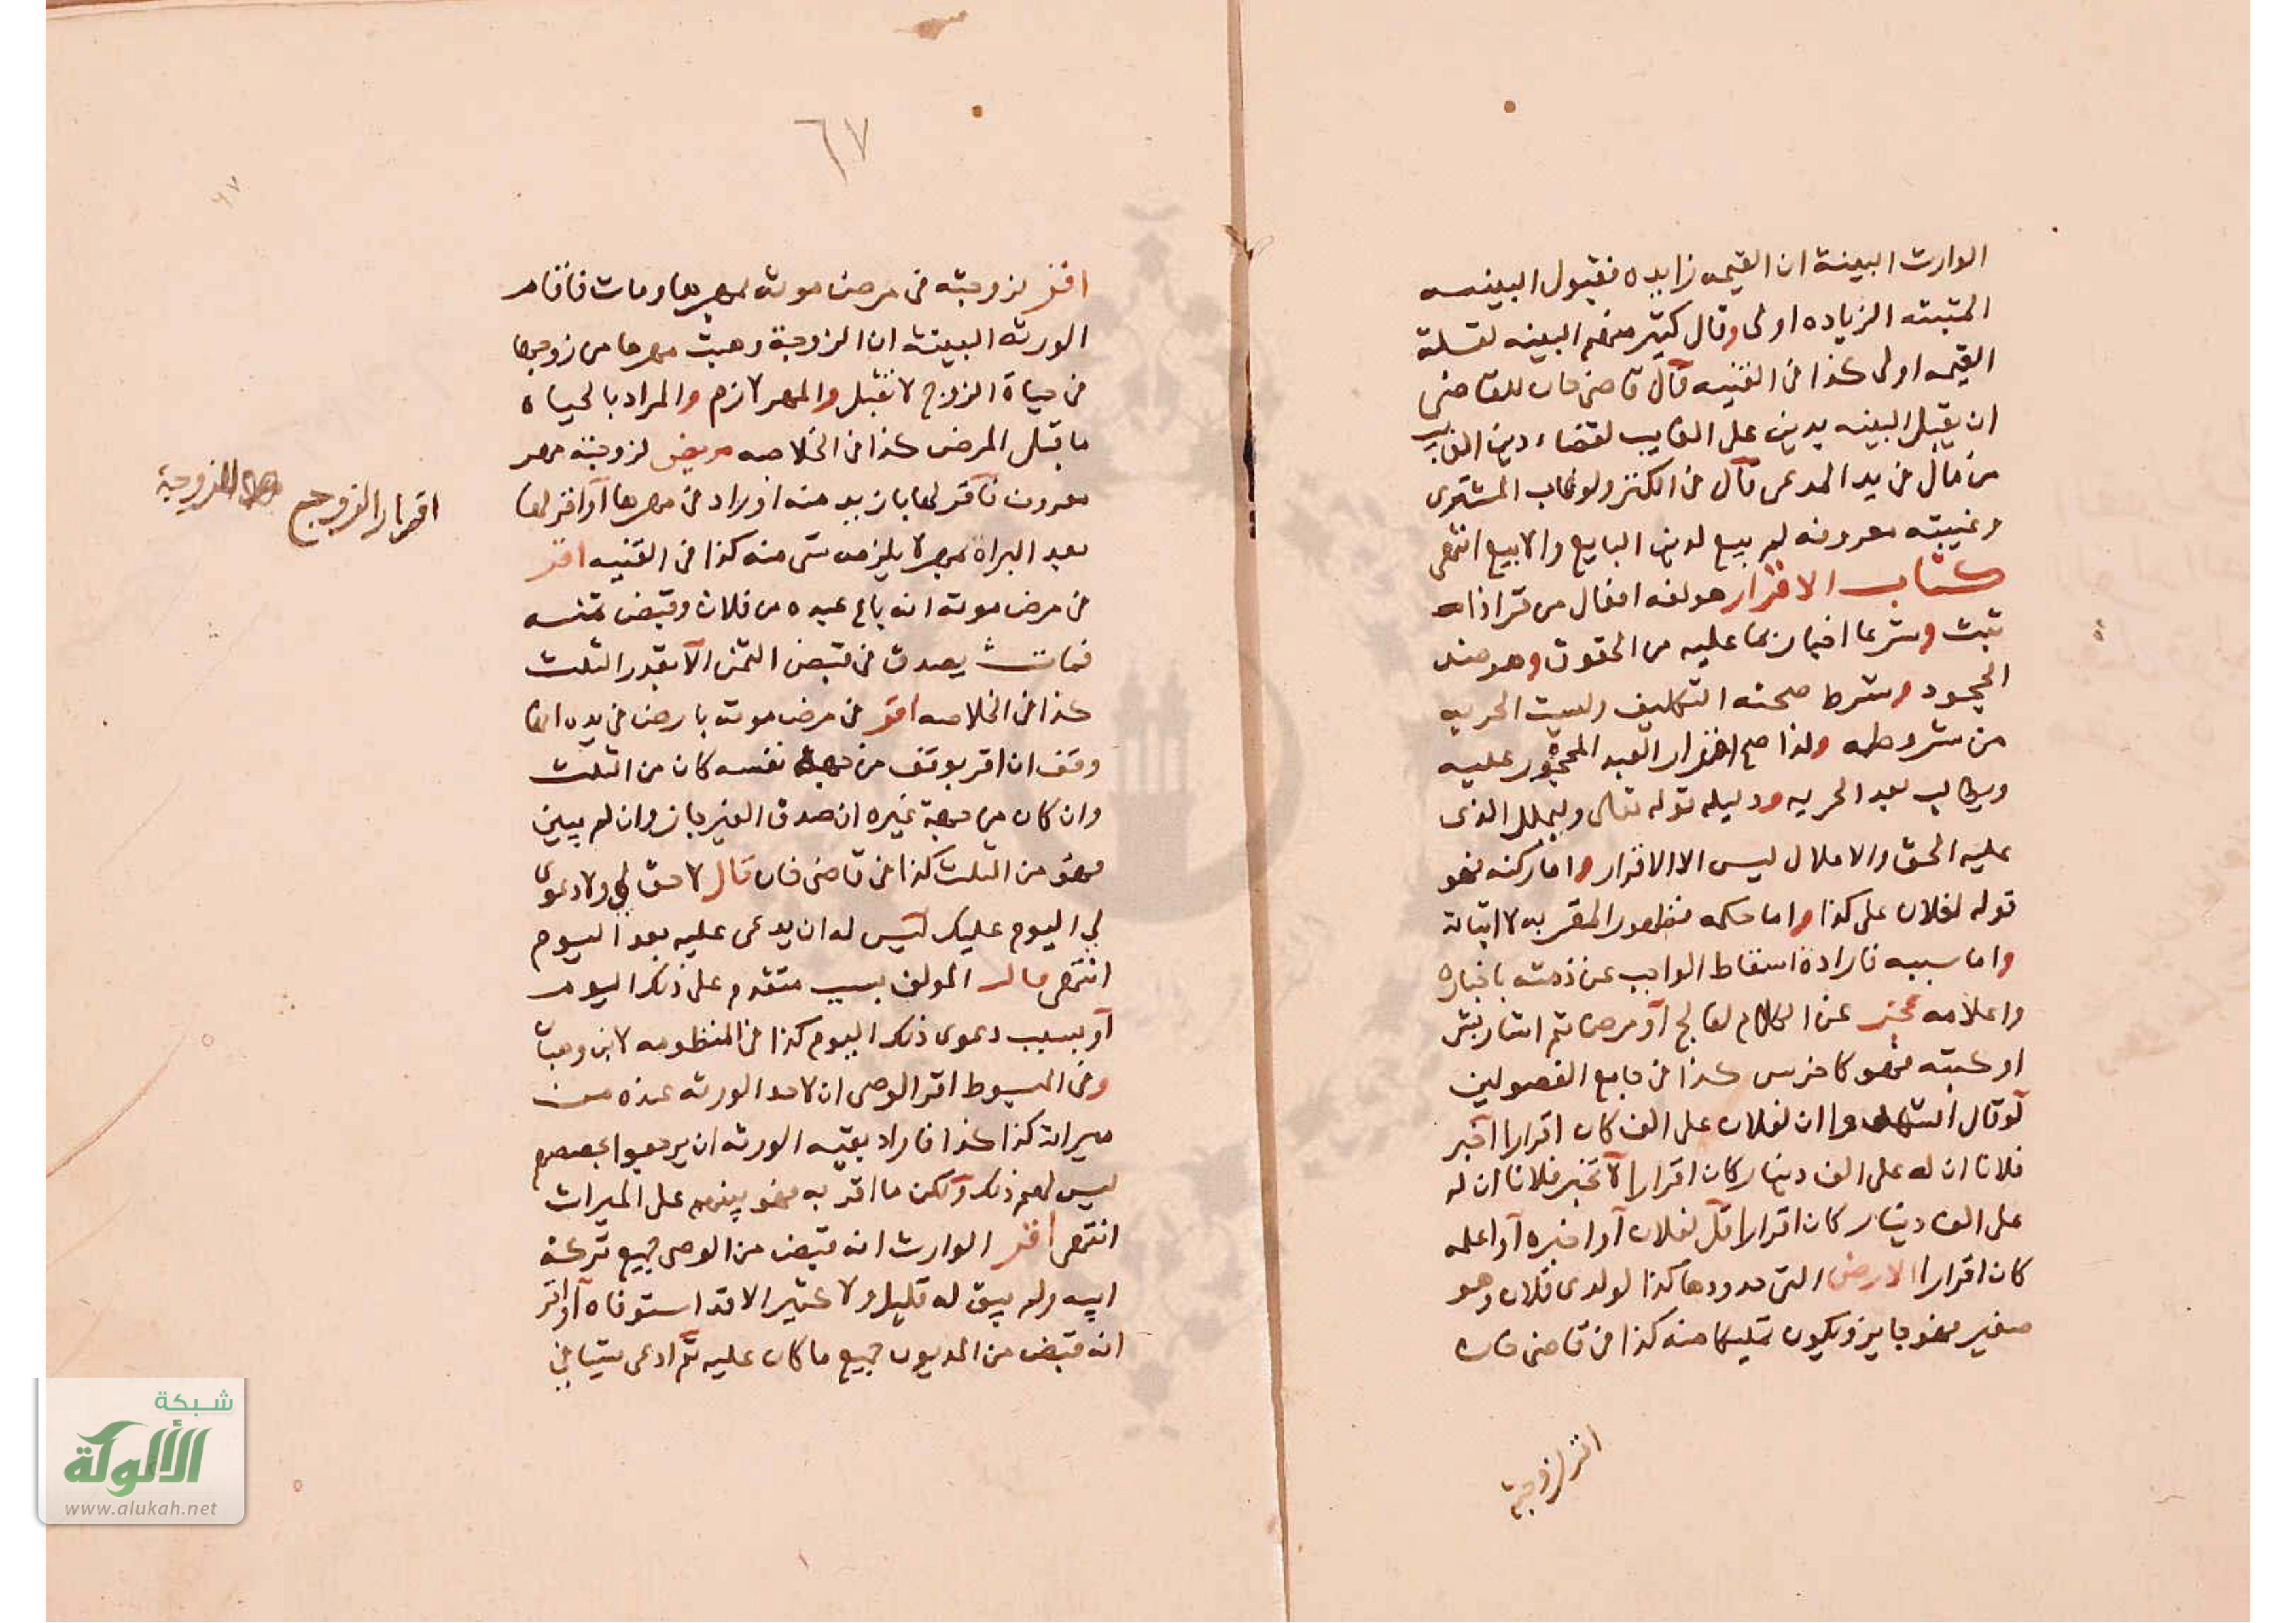 الوارث البينة ان القيمه زايده فقبول البينه
المثبته الزياده اولى وقال كثير منهم البينه لقلة
القيمه اولى كذا في القنيه قال قاضى خان للقاضى
ان يقبل البينه بدين على الغايب لقضاء دين الغايب
من مال في يد المدعى قال في الكنز ولو غاب المشترى
وغيبته معروفه لم يبيع لدين البايع والا بيع انتهى
كتاب الاقرار هو لغه افعال من قر اذا
ثبت وشرعا اخبار بما عليه من الحقوق وهو ضد
الجحود وشرط صحته التكليف وليست الحريه
من شروطه ولذا صح اقرار العبد المحجور عليه
ويطالب بعد الحريه ودليله قوله تعالى وليملل الذى
عليه الحق والاملال ليس الا الاقرار واما ركنه فهو
قوله لفلان على كذا واما حكمه فظهور المقر به لا اثباته
واما سببه فارادة اسقاط الواجب عن ذمته باخباره
واعلامه عجز عن الكلام لفالج او مرض ثم اشار بشى
او كتبه فهو كاخرس كذا في جامع الفصولين
لو قال اشهدوا ان لفلان على الف كان اقرارا اخبر
فلانا ان له على الف دينار كان اقرارا لا تخبر فلانا ان له
على الف دينار كان اقرارا قل لفلان او اخبره او اعلمه
كان اقرارا الارض التى حدودها كذا لولدى فلان وهو
صغير فهو جايز ويكون تمليكا منه كذا في قاضى خان
اقر لزوجته
٦٧
٦٧
اقر لزوجته في مرض موته بمهرها ومات فاقام
الورثه البينة ان الزوجة وهبت مهرها من زوجها
في حياة الزوج لا تقبل والمهر لازم والمراد بالحياة
ما قبل المرض كذا في الخلاصه مريض لزوجته مهر
معروف فاقر لها بازيد منه او زاد في مهرها او اقر لها
بعد البراة بمهر لا يلزمه شى منه كذا في القنيه اقر
في مرض موته انه باع عبده من فلان وقبض ثمنه
فمات يصدق في قبض الثمن الا بقدر الثلث
كذا في الخلاصه اقر في مرض موته بارض في يده انها
وقف ان اقر بوقف من جهة نفسه كان من الثلث
وان كان من جهة غيره ان صدق الغير جاز وان لم يبين
فهو من الثلث كذا في قاضى خان قال لا حق لي ولا دعوى
لي اليوم عليك ليس له ان يدعى عليه بعد اليوم
انتهى قال المولف بسبب متقدم على ذلك اليوم
او بسبب دعوى ذلك اليوم كذا في المنظومه لابن وهبان
وفي المبسوط اقر الوصى ان لاحد الورثه عنده من
ميراثه كذا كذا فاراد بقيه الورثه ان يرجعوا بحصصهم
ليس لهم ذلك ولكن ما اقر به فهو بينهم على الميراث
انتهى اقر الوارث انه قبض من الوصى جميع تركة
ابيه ولم يبق له قليل ولا كثير الا قد استوفاه او اقر
انه قبض من المديون جميع ما كان عليه ثم ادعى شيا في
اقرار الزوج
للزوجة
شبكة
الألوكة
www.alukah.net